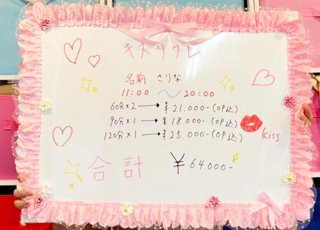 名前 さりな
11:00 〜 20:00
60分×2 → ¥21,000-(OP込)
90分×1 → ¥18,000-(OP込)
120分×1 → ¥25,000-(OP込)
kiss
合計 ¥64,000-